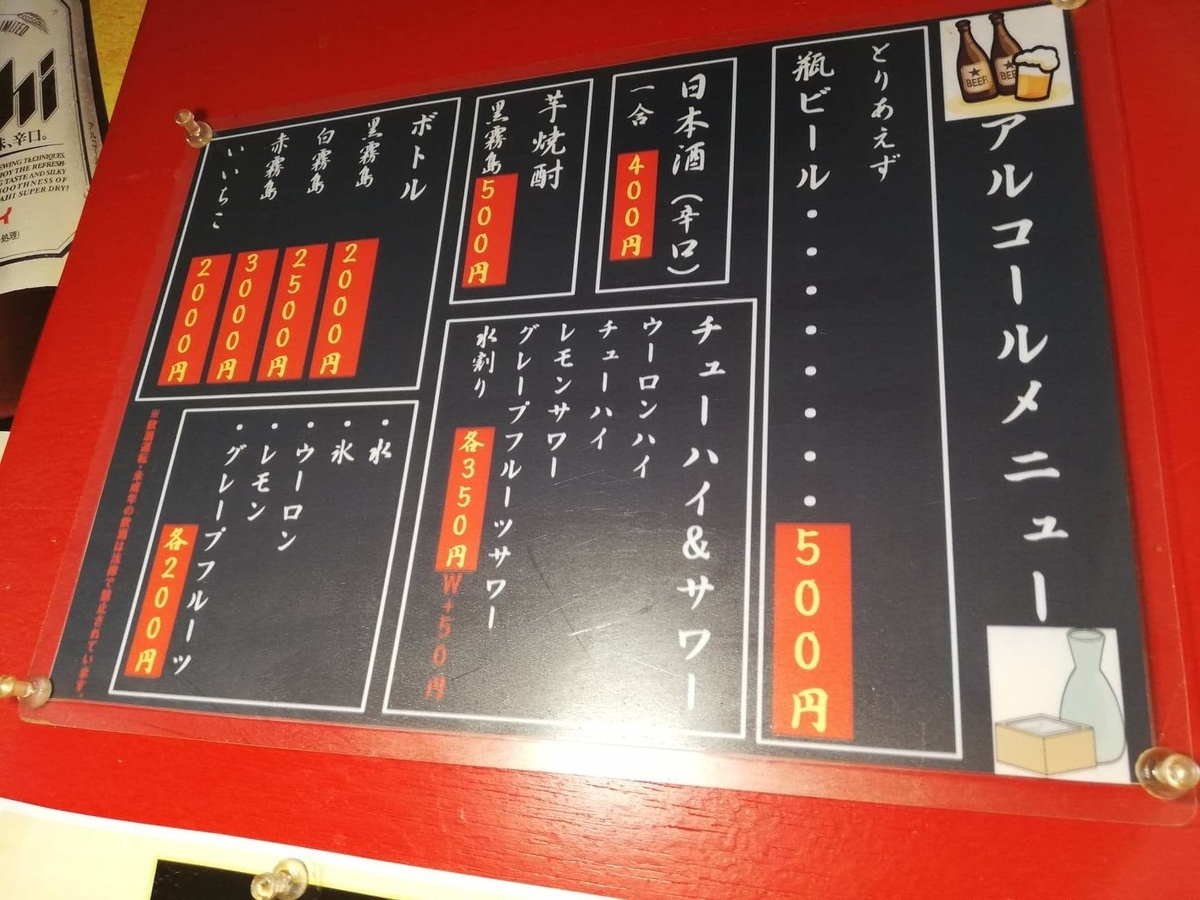 アルコールメニュー
BEER
BEE
とりあえず
瓶ビール・・・・・・・・500円
日本酒(辛口)
一合 400円
芋焼酎
黒霧島 500円
チューハイ&サワー
ウーロンハイ
チューハイ
レモンサワー
グレープフルーツサワー
水割り 各350円
W+50円
ボトル
黒霧島 2000円
白霧島 2500円
赤霧島 3000円
いいちこ 2000円
・水
・氷
・ウーロン
・レモン
・グレープフルーツ
各200円
※飲酒運転・未成年の飲酒は法律で禁止されています。
味、辛口。